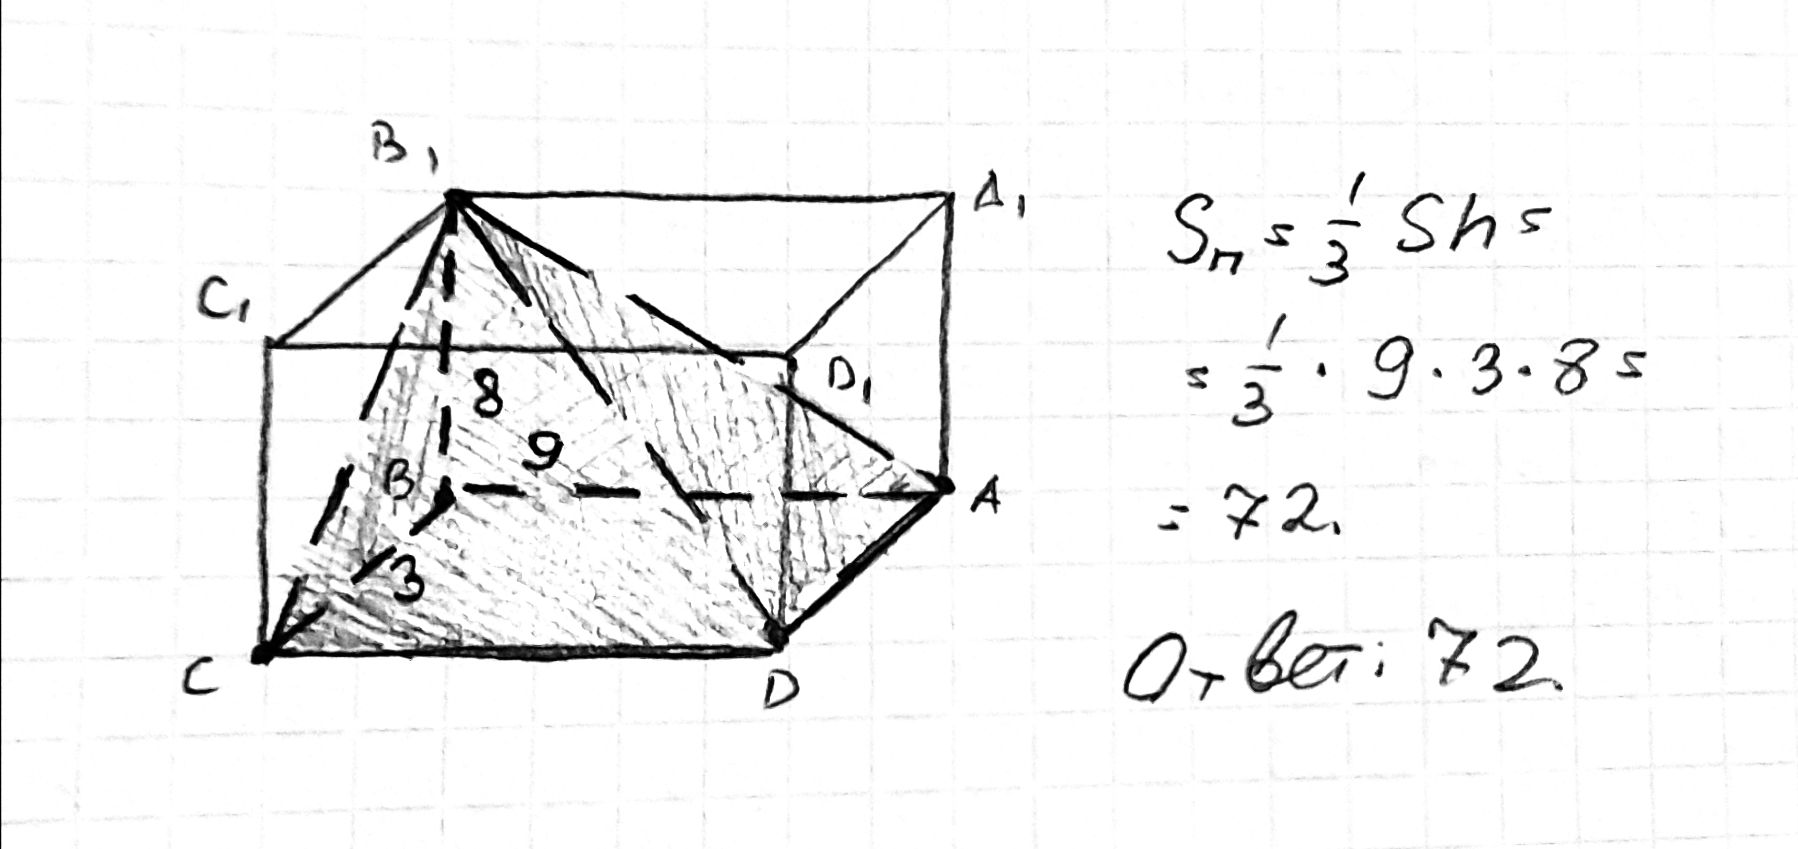 B₁
A₁
C₁
D₁
8
9
B
A
3
C
D
Sп = 1/3 Sh =
= 1/3 · 9 · 3 · 8 =
= 72.
Ответ: 72.